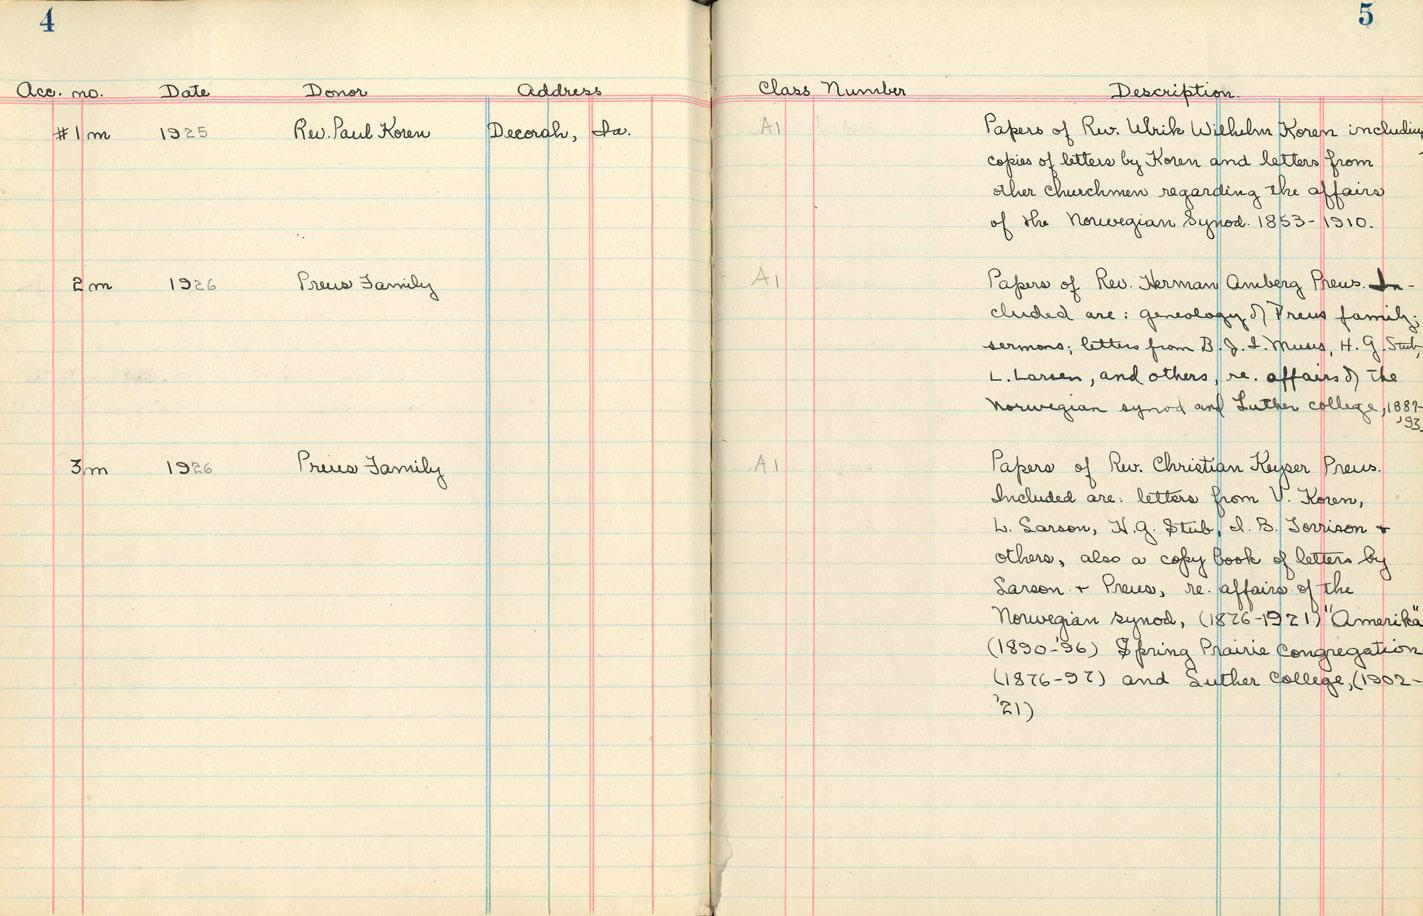 4
5
Acc. no. Date Donor Address
Class Number Description.
#1 m 1925 Rev. Paul Koren Decorah, Ia.
A1 Papers of Rev. Ulrik Wilhelm Koren including
copies of letters by Koren and letters from
other churchmen regarding the affairs
of the Norwegian Synod. 1853-1910.
2 m 1926 Preus Family
A1 Papers of Rev. Herman Amberg Preus. In-
cluded are: geneology of Preus family;
sermons; letters from B. J. I. Muus, H. G. Stub,
L. Larsen, and others, re. affairs of the
Norwegian synod and Luther college,
'93.
3 m 1926 Preus Family
A1 Papers of Rev. Christian Keyser Preus.
Included are: letters from V. Koren,
L. Larson, H. G. Stub, I. B. Torrison +
others, also a copy book of letters by
Larson + Preus, re. affairs of the
Norwegian synod, (1876-1921) "Amerika"
(1890-'96) Spring Prairie Congregation
(1876-97) and Luther College, (1902-
'21)